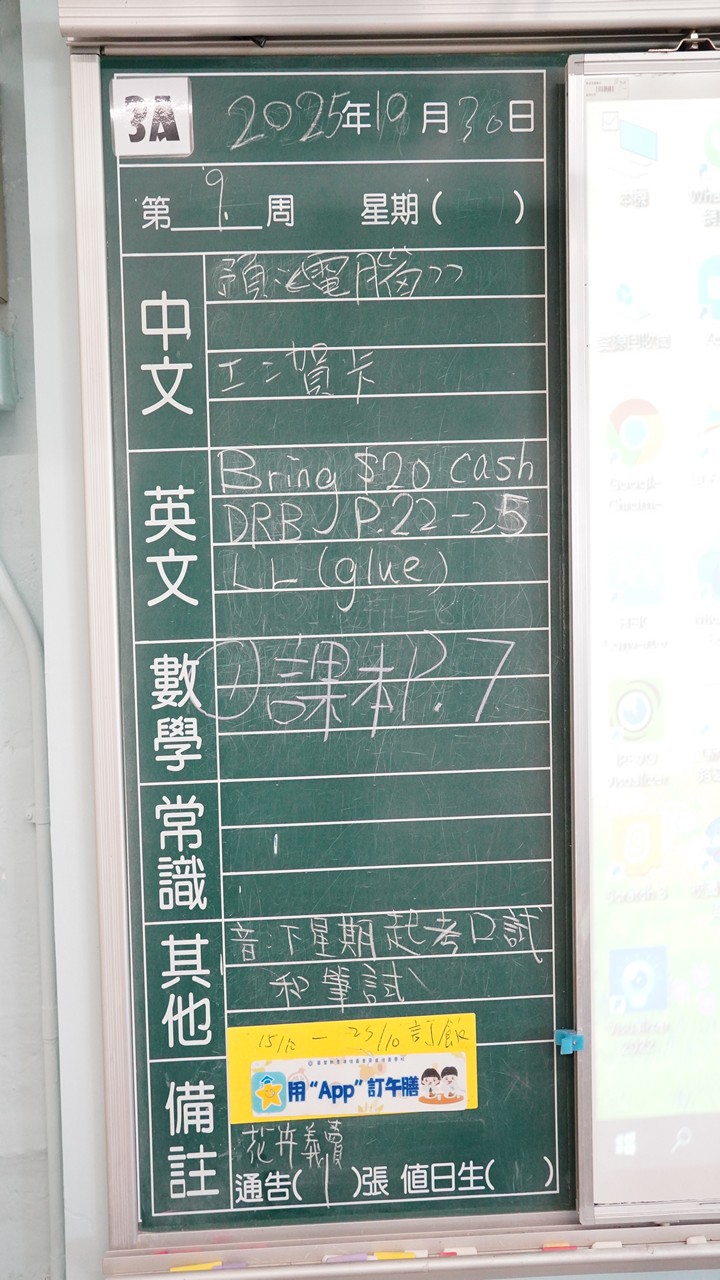 3A 2025年10月30日
第 9 周 星期( )
中文
預:《電腦》
工:賀卡
英文
Bring $20 cash
DRB J P.22-25
LL (glue)
數學
① 課本P.7
常識
其他
音:下星期起考口試
和筆試
備註
15/10 — 23/10 訂飯
用“App”訂午膳
花卉義賣
通告( 1 )張 值日生( )